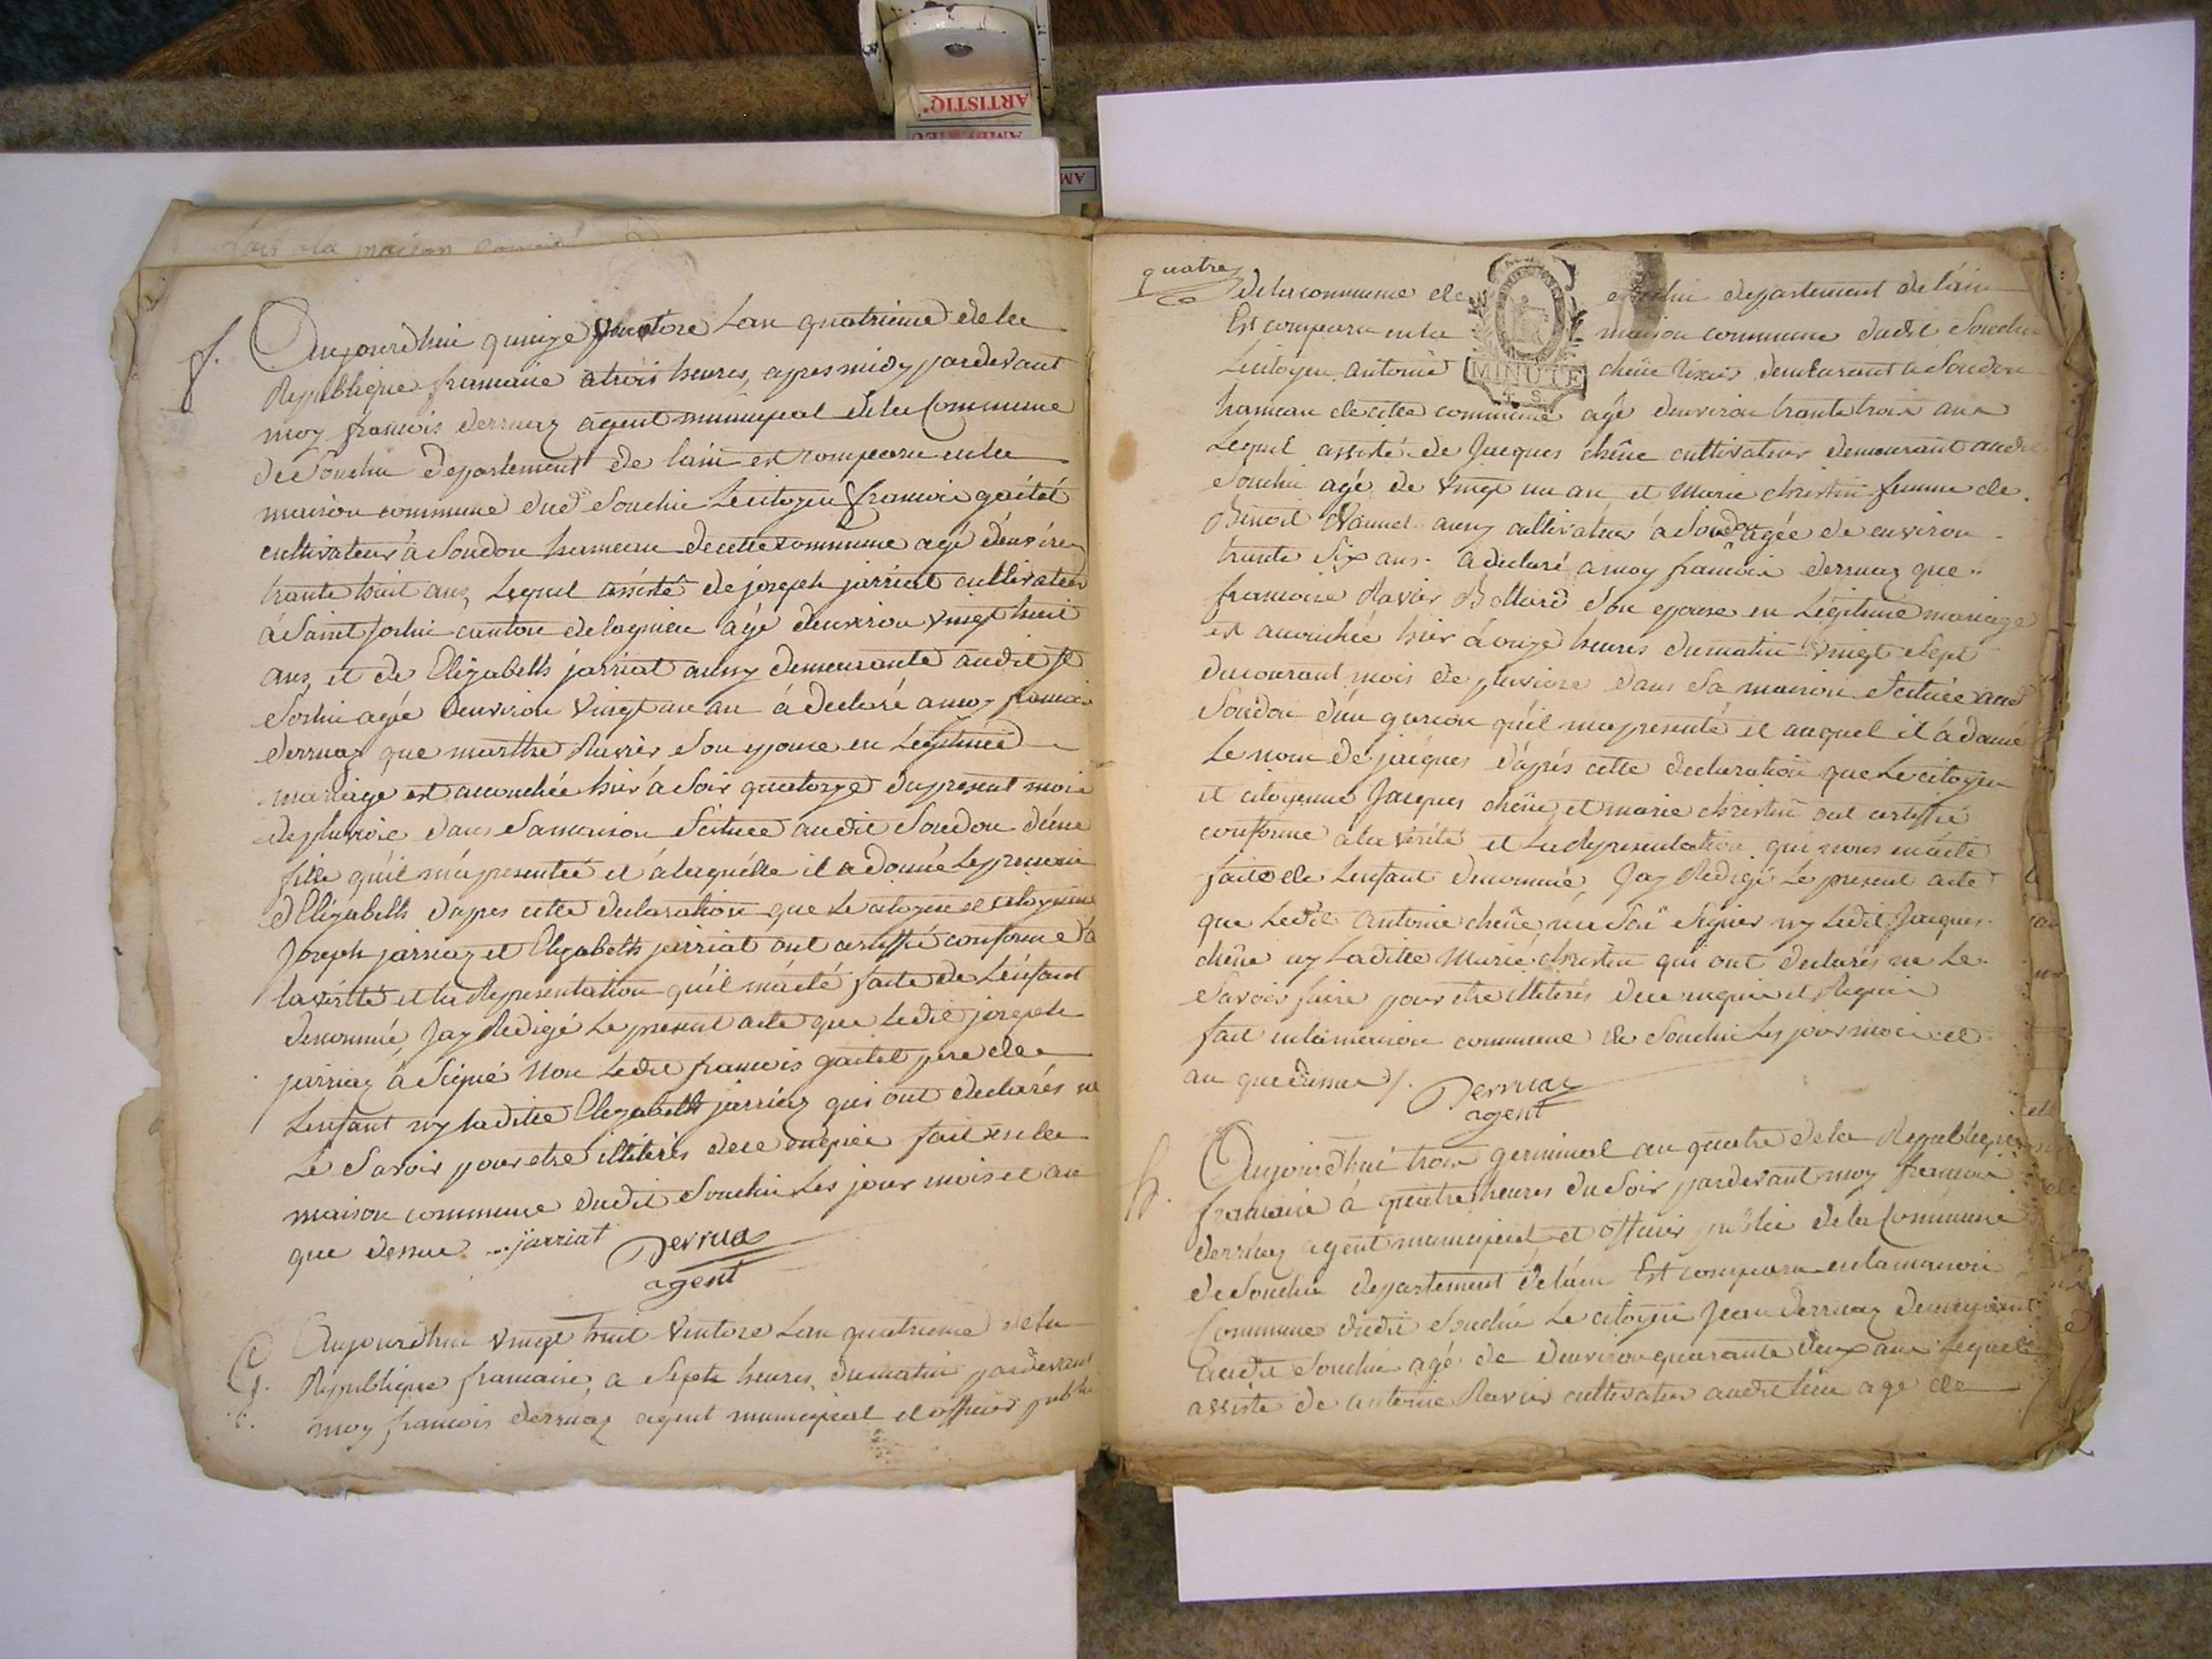 f.
Aujourdhui quinze ventose Lan quatrieme de la
Republique francaise a trois heures, apres midy pardevant
moy francois derruaz agent municipal de la Commune
de Souclin departement de lain est comparu en la
maison commune dud Souclin Le citoyen francois gaitet
cultivateur à Soudon hameau de cette commune agé denviron
trante huit ans, Lequel assisté de joseph jarriat cultivateur
à Saint Sorlin canton de lagnieu agé denviron vingt huit
ans, et de Elizabeth jarriat aussy demeurante audit St
Sorlin agée denviron vingt un an à declaré a moy francois
derruaz que marthe Ravier son epouse en Légitime
mariage est accouchée hier à Soir quatorze du present mois
de pluviose dans Sa maison Scituee audit Soudon dune
fille qu'il m'a presentée et à laquelle il a donné le prenom
d'Elizabeth dapres cette declaration que Le citoyen et citoyenne
Joseph jarriaz et Elizabeth jarriat ont certiffié conforme à
la vérité et la Representation qu'il m'a été faite de L'enfant
denommé, Jay Redigé Le present acte que Ledit joseph
jarriaz à Signé Non Ledit francois gaitet pere de
Lenfant ny laditte Elizabeth jarriaz qui ont declarés ne
Le Savoir pour etre illiterés de ce enquis fait en la
maison commune dudit Souclin Les jour mois et an
que dessus jarriat Derruaz
agent
g.
Aujourdhui vingt huit ventose Lan quatrieme de la
Republique francaise, a Sept heures, du matin pardevant
moy francois derruaz agent municipal et officier public
quatre
de la commune de Souclin departement de lain
Est comparu en la maison commune dudit Souclin
Le citoyen antoine chêne demeurant a Soudon
MINUTE
hameau de cette commune agé denviron trante trois ans
Lequel assisté de Jacques chêne cultivateur demeurant audit
Souclin agé de vingt un an et Marie christin femme de
Benoit aussy cultivateur à Soudon agée de environ
trante Six ans. a declaré a moy francois derruaz que
francoise Ravier son epouse en Légitime mariage
est accouchée hier à onze heures du matin vingt Sept
du courant mois de pluviose dans Sa maison Scituée aud
Soudon d'un garcon qu'il m'a presenté et auquel il à donné
Le nom de jacques d'après cette declaration que Le citoyen
et citoyenne Jacques chêne et marie christin ont certiffié
conforme a la vérité et La Representation qui nous m'a été
faite de Lenfant denommé, Jay Redigé Le present acte
que Ledit antoine chêne n'a Sçu Signer ny Ledit Jacques
chêne ny Laditte Marie christin qui ont declarés ne Le
Savoir faire pour etre illiterés de ce enquis et Requis
fait en la maison commune de Souclin Les jour mois et
an que dessus Derruaz
agent
h.
Aujourdhui trois germinal an quatre de la Republique
francaise à quatre heures du Soir pardevant moy francois
derruaz agent municipal et officier public de la Commune
de Souclin departement de lain Est comparu en la maison
Commune dudit Souclin Le citoyen Jean derruaz demeurant
audit Souclin agé de denviron quarante deux ans Lequel
assisté de antoine Ravier cultivateur audit lieu agé de